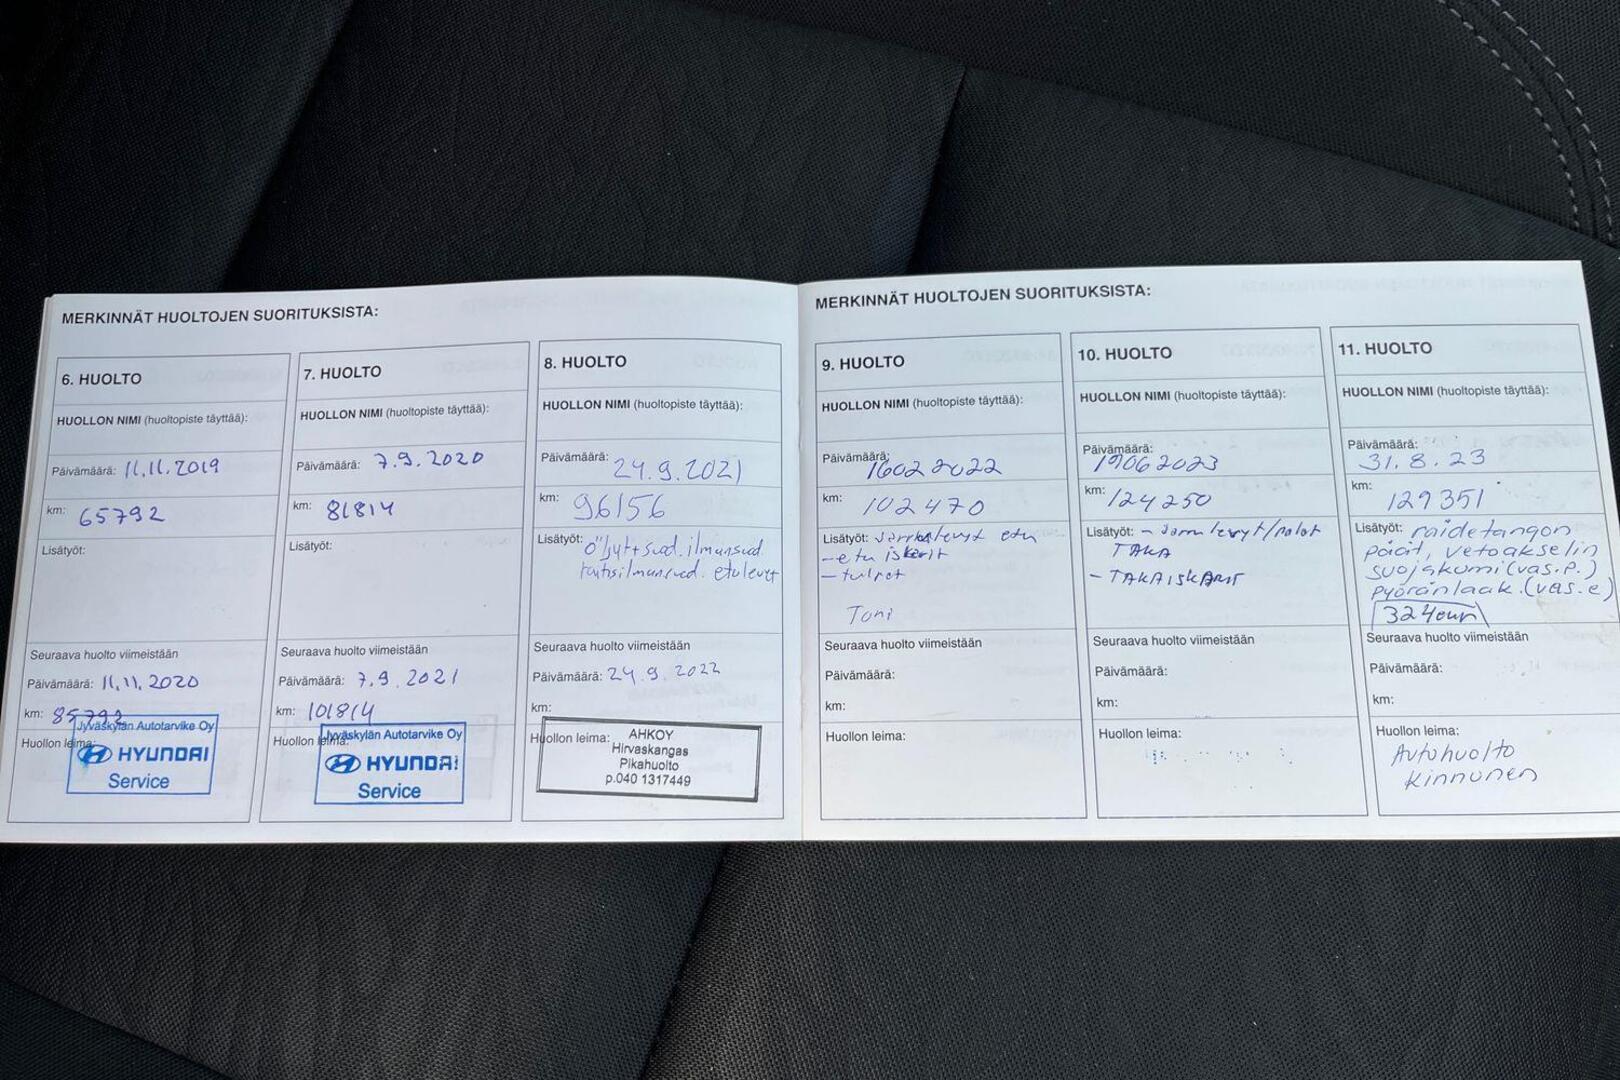 MERKINNÄT HUOLTOJEN SUORITUKSISTA:
6. HUOLTO
HUOLLON NIMI (huoltopiste täyttää):
Päivämäärä: 11.11.2019
km: 65792
Lisätyöt:
Seuraava huolto viimeistään
Päivämäärä: 11.11.2020
km: 85792
Huollon leima:
Jyväskylän Autotarvike Oy
HYUNDAI
Service
7. HUOLTO
HUOLLON NIMI (huoltopiste täyttää):
Päivämäärä: 7.9.2020
km: 81814
Lisätyöt:
Seuraava huolto viimeistään
Päivämäärä: 7.9.2021
km: 101814
Huollon leima:
Jyväskylän Autotarvike Oy
HYUNDAI
Service
8. HUOLTO
HUOLLON NIMI (huoltopiste täyttää):
Päivämäärä: 24.9.2021
km: 96156
Lisätyöt: Öljyt+suod. ilmansuod.
raitisilmansuod. etulevyt
Seuraava huolto viimeistään
Päivämäärä: 24.9.2022
km:
Huollon leima:
AHKOY
Hirvaskangas
Pikahuolto
p.040 1317449
MERKINNÄT HUOLTOJEN SUORITUKSISTA:
9. HUOLTO
HUOLLON NIMI (huoltopiste täyttää):
Päivämäärä: 16022022
km: 102470
Lisätyöt: Jarrulevyt etu
- etu iskarit
- tulpat
Toni
Seuraava huolto viimeistään
Päivämäärä:
km:
Huollon leima:
10. HUOLTO
HUOLLON NIMI (huoltopiste täyttää):
Päivämäärä: 19062023
km: 124250
Lisätyöt: - Jarrulevyt/palat
TAKA
- TAKAISKARIT
Seuraava huolto viimeistään
Päivämäärä:
km:
Huollon leima:
11. HUOLTO
HUOLLON NIMI (huoltopiste täyttää):
Päivämäärä: 31.8.23
km: 129351
Lisätyöt: raidetangon
päät, vetoakselin
suojakumi (vas.p.)
pyöränlaak. (vas.e)
324eur
Seuraava huolto viimeistään
Päivämäärä:
km:
Huollon leima:
Autohuolto
Kinnunen